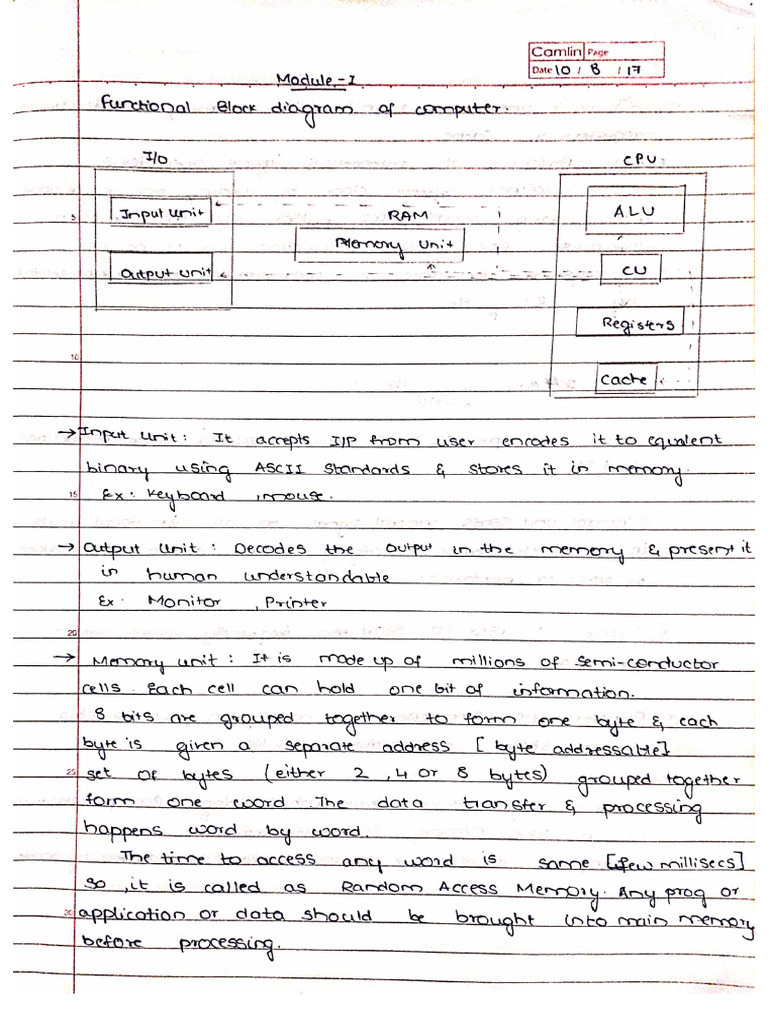 Camlin Page
Date 10 / 8 / 17
Module-I
Functional Block diagram of computer.
I/O CPU
Input unit RAM ALU
Memory Unit
Output unit CU
Registers
Cache
5
10
→ Input Unit: It accepts I/P from user encodes it to equilent
binary using ASCII standards & stores it in memory.
15 Ex: Keyboard, mouse.
→ Output Unit: Decodes the output in the memory & present it
in human understandable
Ex. Monitor, Printer
20
→ Memory unit: It is made up of millions of semi-conductor
cells. Each cell can hold one bit of information.
8 bits are grouped together to form one byte & each
byte is given a separate address [byte addressable]
25 set of bytes (either 2, 4 or 8 bytes) grouped together
form one word. The data transfer & processing
happens word by word.
The time to access any word is same [few millisecs]
so, it is called as Random Access Memory. Any prog or
30 application or data should be brought into main memory
before processing.